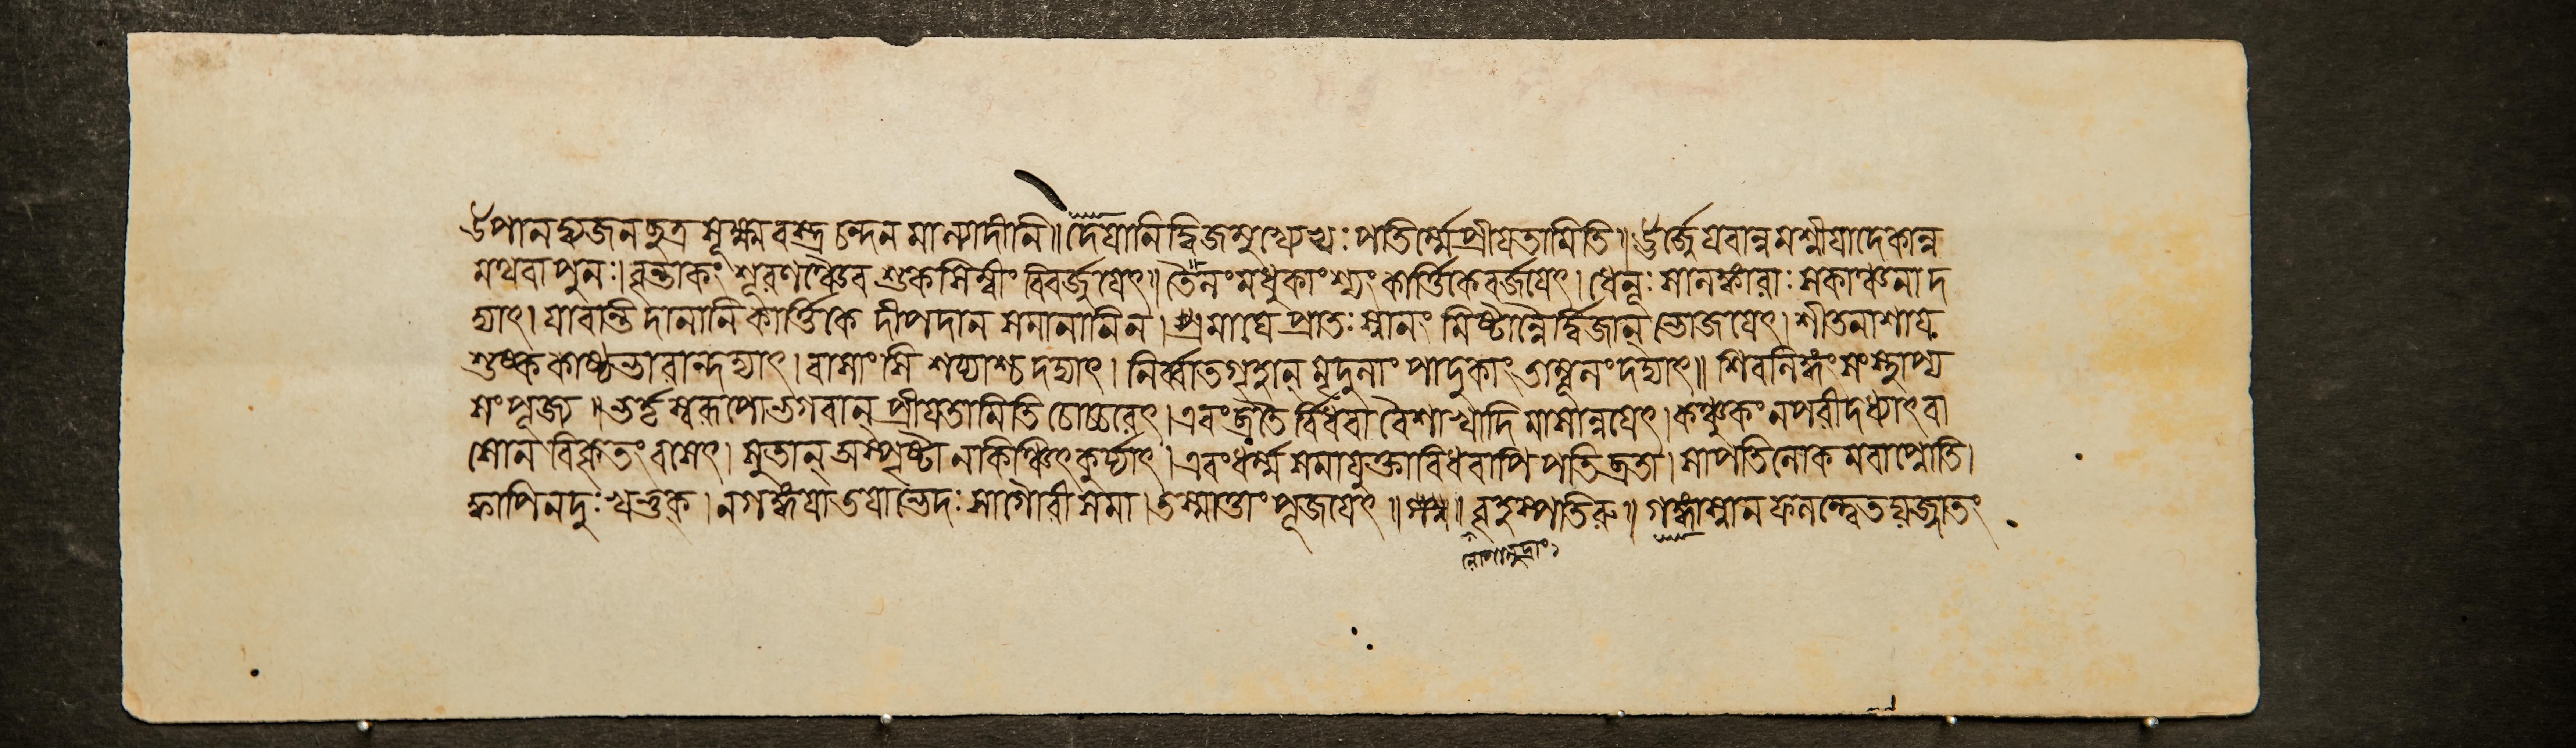 উপানদ্ব্যজনছত্র সূক্ষ্মবস্ত্র চন্দন মাল্যাদীনি॥ দেয়ানি দ্বিজমুখ্যেভ্যঃ পতির্ম্মে প্রীয়তামিতি॥ ঊর্জ্জে যবান্নমশ্নীয়াদেকান্ন
মথবা পুনঃ। বৃন্তাকং শূরণঞ্চৈব শুকশিম্বীং বিবর্জ্জয়েৎ॥ তৈলং মধুকাংস্যং কার্ত্তিকে বর্জয়েৎ। ধেনূঃ সালঙ্কারাঃ সকাঞ্চনা দ
দ্যাৎ। যাবন্তি দানানি কার্ত্তিকে দীপদান সমানানি ন। মাঘে প্রাতঃ স্নানং মিষ্টান্নৈর্দ্বিজান্ ভোজয়েৎ। শীতনাশায়
শুষ্ককাষ্ঠভারান্দদ্যাৎ। বাসাংসি শয্যাশ্চ দদ্যাৎ। নির্ব্বাতগৃহান্ মৃদুলাং পাদুকাং তাম্বূলং দদ্যাৎ॥ শিবলিঙ্গং সংস্থাপ্য
সংপূজ্য॥ ভর্তৃস্বরূপো ভগবান্ প্রীয়তামিতি চোচ্চরেৎ। এবং ব্রতৈ র্বিধবা বৈশাখাদি মাসান্নয়েৎ। কঞ্চুকং ন পরীদধ্যাৎ বা
সো ন বিকৃতং বসেৎ। সুতান্ অস্পৃষ্ট্বা ন কিঞ্চিৎ কুর্য্যাৎ। এবং ধর্ম্ম সমাযুক্তা বিধবাপি পতিব্রতা। সা পতিলোকমবাপ্নোতি।
ক্বাপি ন দুঃখভুক্। ন গঙ্গয়া তয়া ভেদঃ সা গৌরী সমা। তস্মাত্তাং পূজয়েৎ॥ বৃহস্পতিরু॥ গঙ্গাস্নান ফলন্ত্বেতদ্যজ্জাতং
লোপামুদ্রাং